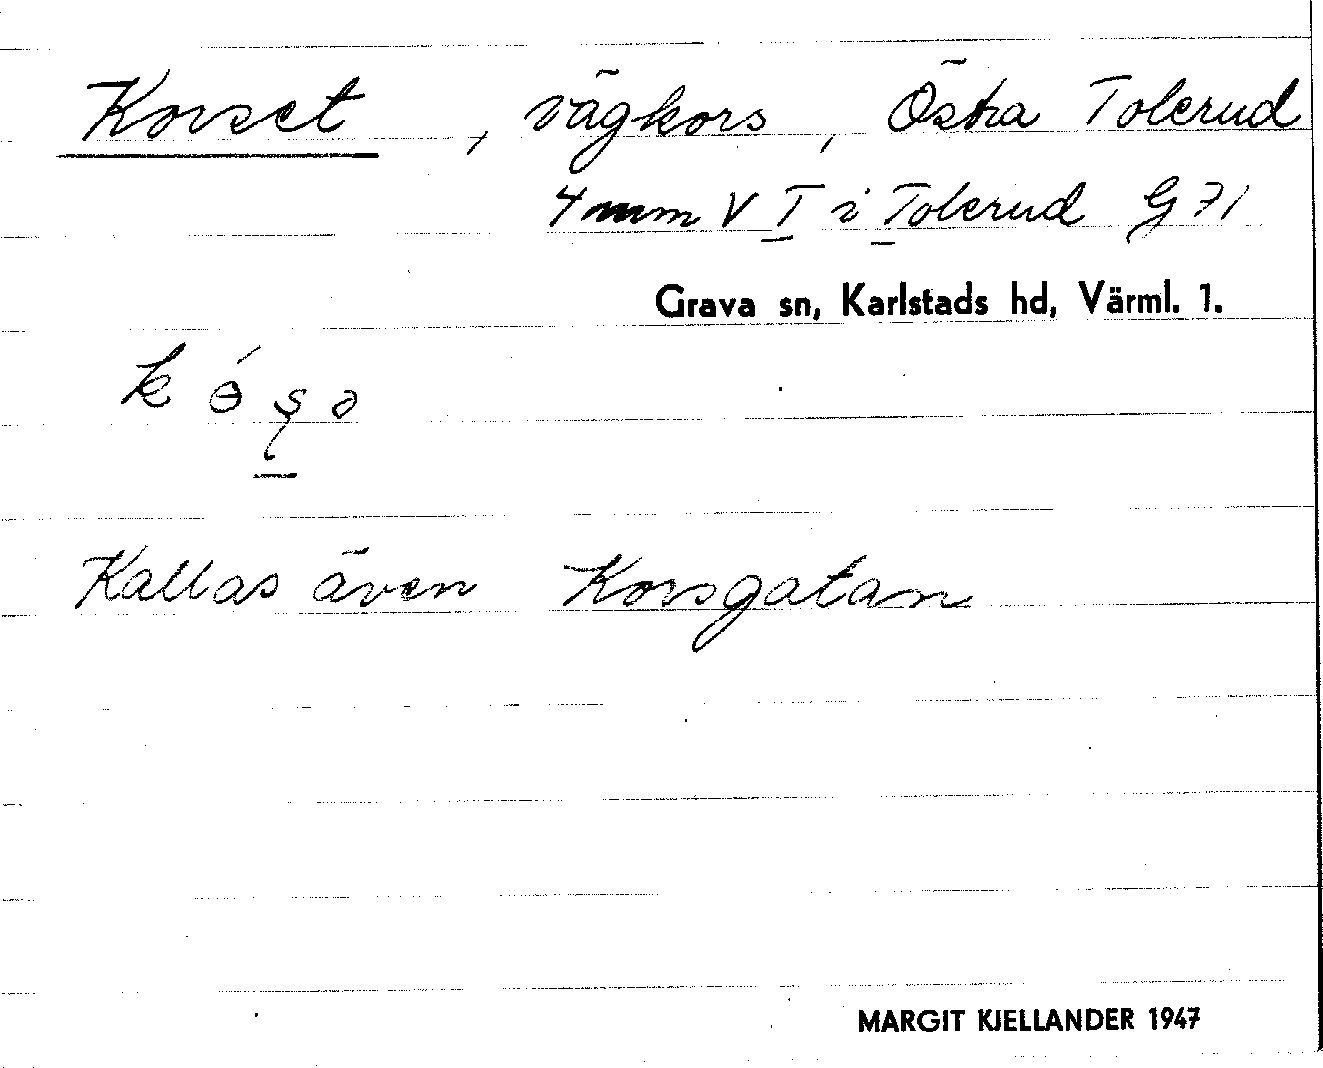 Korset, vägkors, Östra Tolerud
4 mm V T i Tolerud G 71
Grava sn, Karlstads hd, Värml. l.
Kallas även Korsgatan
MARGIT KJELLANDER 1947